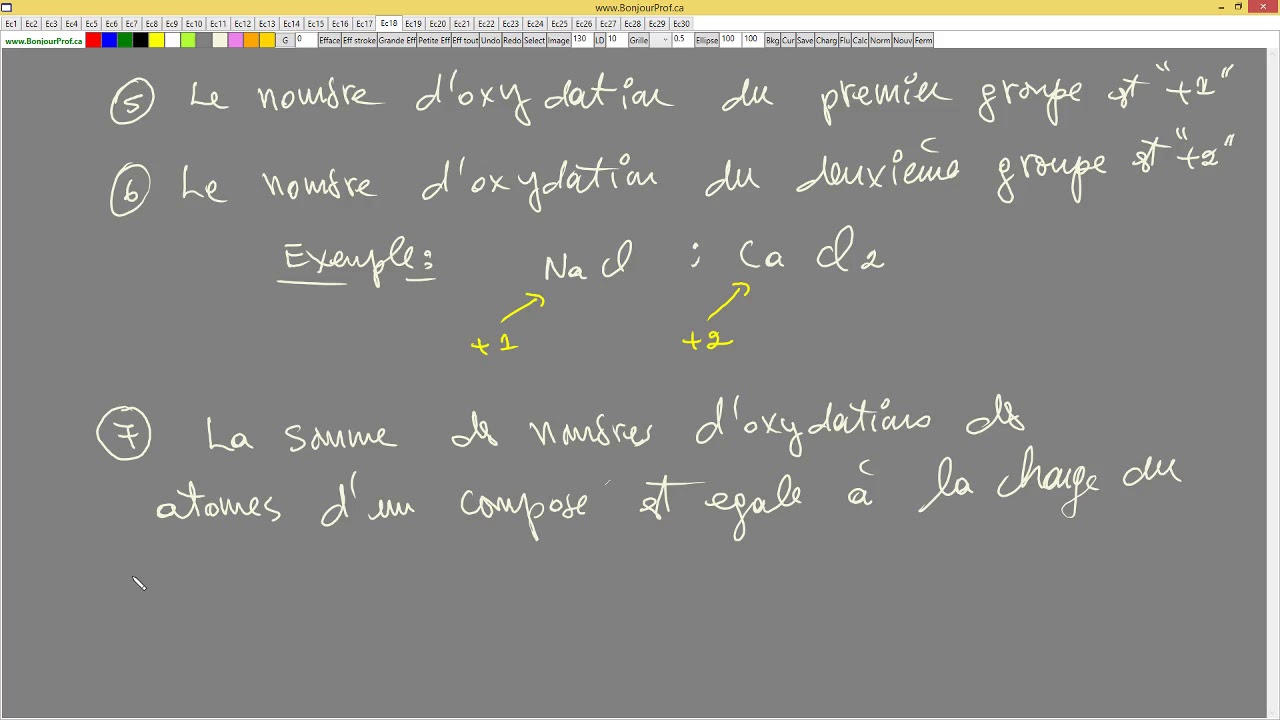 www.BonjourProf.ca
Ec1 Ec2 Ec3 Ec4 Ec5 Ec6 Ec7 Ec8 Ec9 Ec10 Ec11 Ec12 Ec13 Ec14 Ec15 Ec16 Ec17 Ec18 Ec19 Ec20 Ec21 Ec22 Ec23 Ec24 Ec25 Ec26 Ec27 Ec28 Ec29 Ec30
www.BonjourProf.ca G 0 Efface Eff stroke Grande Eff Petite Eff Eff tout Undo Redo Select Image 130 LD 10 Grille 0.5 Ellipse 100 100 Bkg Cur Save Charg Flu Calc Norm Nouv Ferm
5 Le nombre d'oxydation du premier groupe est "+1"
6 Le nombre d'oxydation du deuxième groupe est "+2"
Exemple: NaCl ; CaCl2
+1 +2
7 La somme des nombres d'oxydations des
atomes d'un composé est egale à la charge du